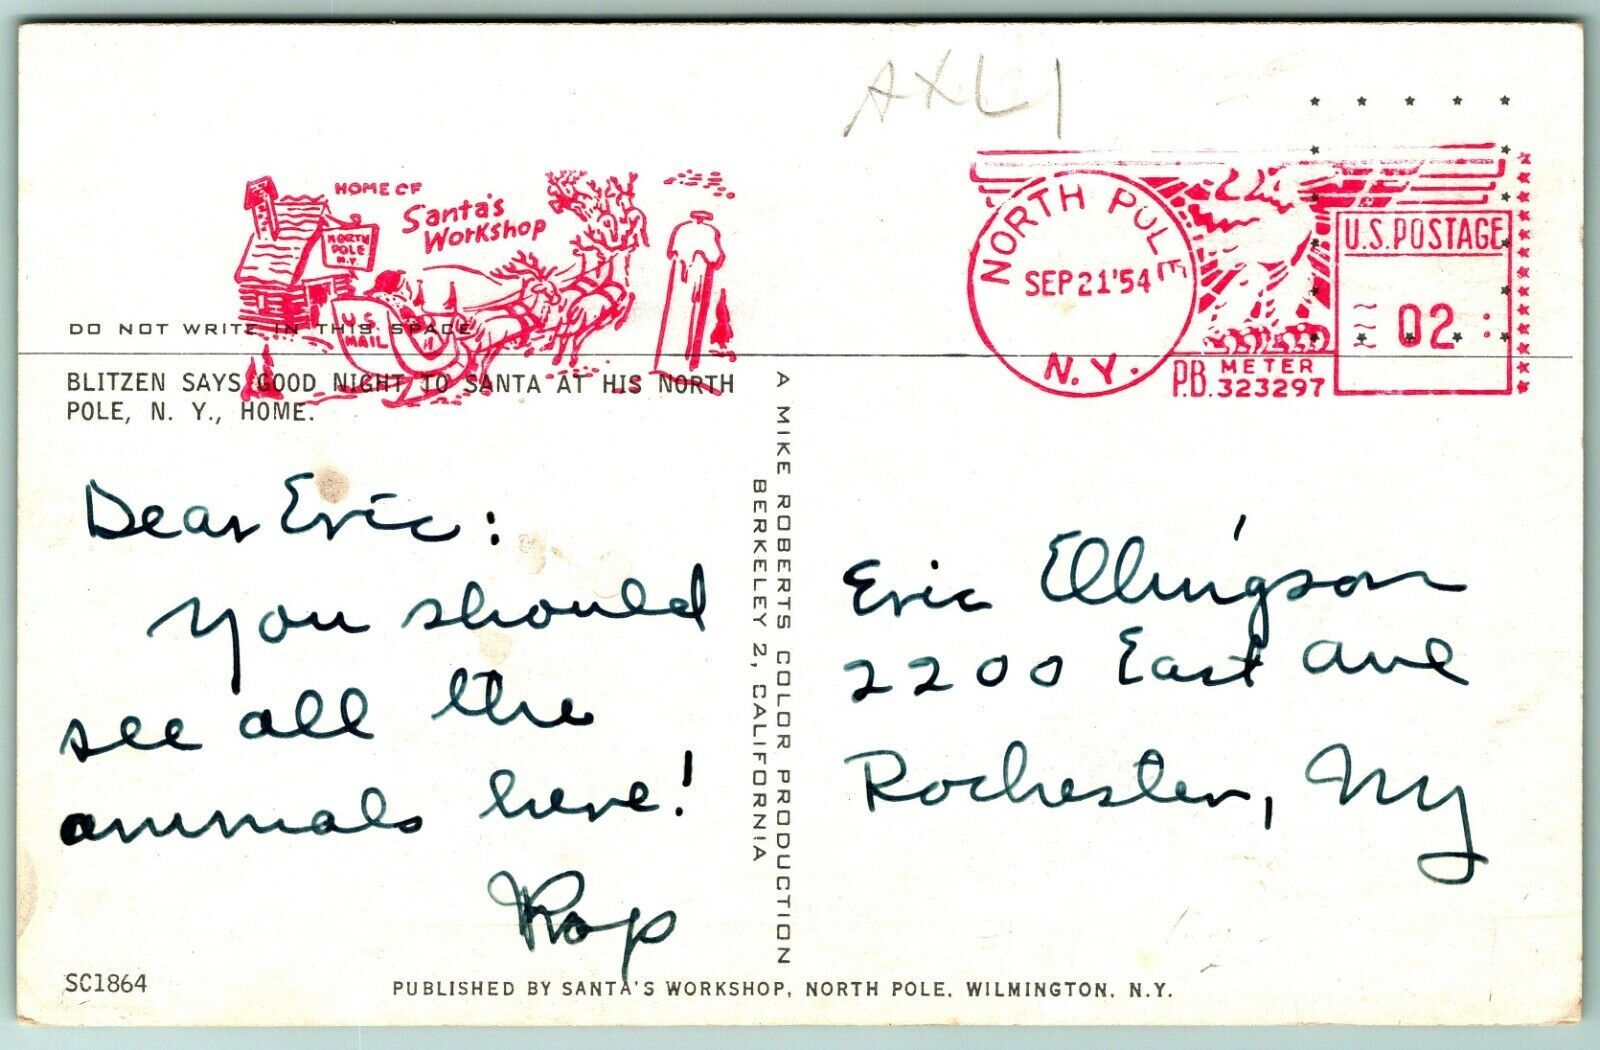 AXL1
HOME OF
Santa's
Workshop
NORTH
POLE
N.Y.
U.S.
MAIL
NORTH POLE
SEP 21 '54
N.Y.
U.S. POSTAGE
02
P.B. METER
323297
DO NOT WRITE IN THIS SPACE
BLITZEN SAYS GOOD NIGHT TO SANTA AT HIS NORTH
POLE, N. Y., HOME.
Dear Eric:
You should
see all the
animals here!
A MIKE ROBERTS COLOR PRODUCTION
BERKELEY 2, CALIFORNIA
Eric Ellingson
2200 East Ave
Rochester, NY
SC1864
PUBLISHED BY SANTA'S WORKSHOP, NORTH POLE, WILMINGTON, N.Y.